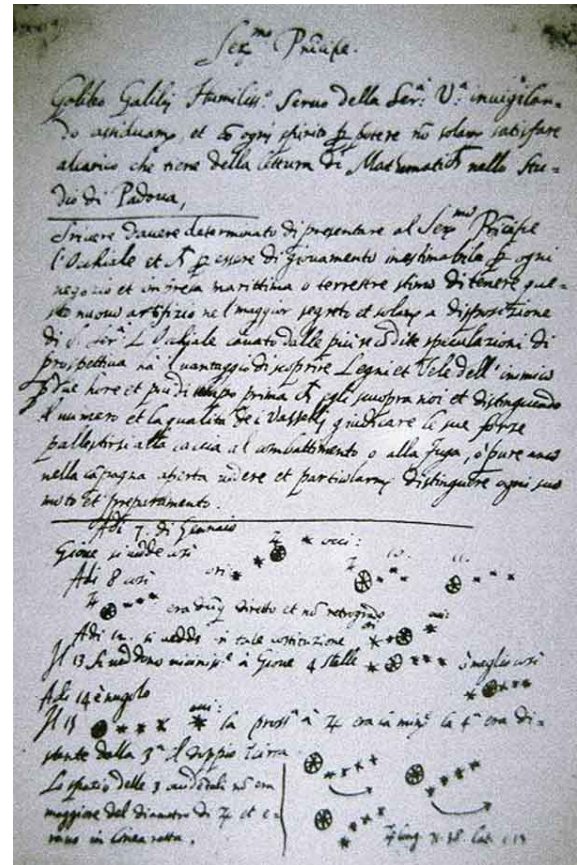 Ser.mo Principe.
Galileo Galilei Humiliss.o Servo della Ser.a V.a invigilan-
do assiduamte, et co ogni spirito p potere no solamte satisfare
alcarico che tiene della lettura di Mathematich nello Stu-
dio di Padova,
Scrivere d'avere determinato di presentare al Ser.mo Principe
l'Occhiale et p essere di giovamento inestimabile p ogni
negozio et impresa marittima o terrestre stimo di tenere que-
sto nuovo artifizio nel maggior segreto et solamte a disposizione
di S. Ser.a L'Occhiale cavato dalle più recondite speculazioni di
prospettiva ha il vantaggio di scoprire Legni et Vele dell'inimico
p due hore et più di tempo prima ch egli scuopra noi et distinguendo
il numero et la qualità dei Vasselli giudicare le sue forze
pallestirsi alla caccia al combattimento o alla fuga, o pure anco
nella capagna aperta vedere et particolarmte distinguere ogni suo
moto et preparamento.
Adi 7. di Gennaio
Gioue si vedde così occi:
Adi 8 così ori: 10. 11.
era dūq diretto et no retrogrado
Adi 12. si vedde in tale costituzione ori occi
Il 13 si veddono vicinis.e à Gioue 4 stelle ò meglio così
Adi 14 è nugolo
Il 15 occi: la pross.a à ♃ era la min.e la 4.a era di-
stante dalla 3.a il doppio circa
Lo spazio delle 3 occidentali nō era
maggiore del diametro di ♃ et e-
rano in linea retta.